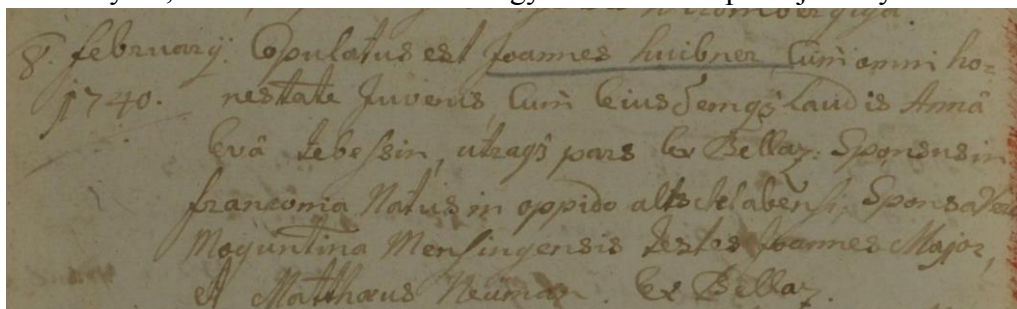 8. february. Copulatus est Joannes huibner Cum omni ho=
1740. nestate Juvenis, Cum Eiusdemq3 Laudis Annâ
Evâ Lebessin, utraq3 pars Ex Bellaz. Sponsus in
franconia Natus in oppido Sponsa Vero
Moguntina Mensingensis testes Joannes Major,
Et Matthæus Neuman. Ex Bellaz.